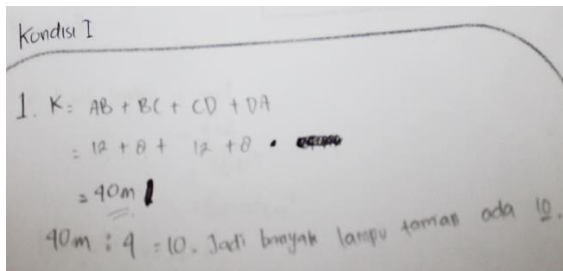 Kondisi I
1. K = AB + BC + CD + DA
= 12 + 8 + 12 + 8
= 40m
40m : 4 = 10. Jadi bnayak lampu taman ada 10.